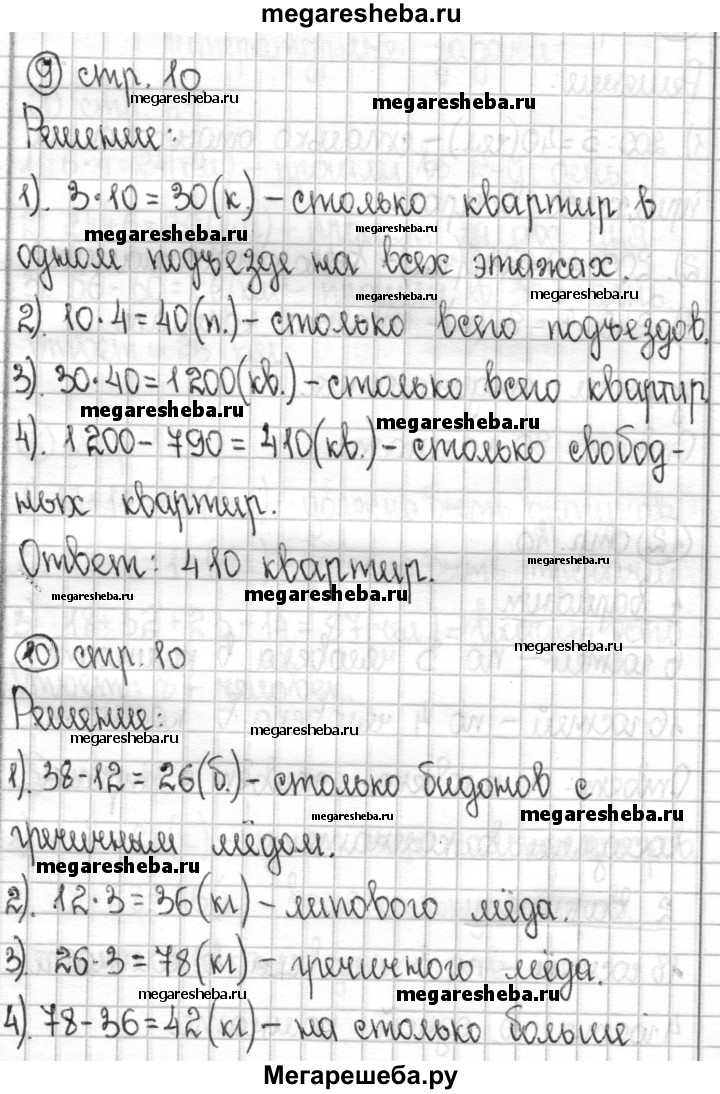 megaresheba.ru
9 стр. 10
megaresheba.ru
megaresheba.ru
Решение:
1). 3·10=30(к.)-столько квартир в
megaresheba.ru
megaresheba.ru
одном подъезде на всех этажах.
megaresheba.ru
megaresheba.ru
2). 10·4=40(п.)-столько всего подъездов.
3). 30·40=1200(кв.)-столько всего квартир
megaresheba.ru
megaresheba.ru
4). 1200-790=410(кв.)-столько свобод-
ных квартир.
Ответ: 410 квартир.
megaresheba.ru
megaresheba.ru
megaresheba.ru
10 стр. 10
megaresheba.ru
Решение:
megaresheba.ru
megaresheba.ru
1). 38-12=26(б.)-столько бидонов с
megaresheba.ru
megaresheba.ru
гречичным мёдом.
megaresheba.ru
2). 12·3=36(кг)-липового мёда.
3). 26·3=78(кг)-гречичного мёда.
megaresheba.ru
megaresheba.ru
4). 78-36=42(кг)-на столько больше
Мегарешеба.ру